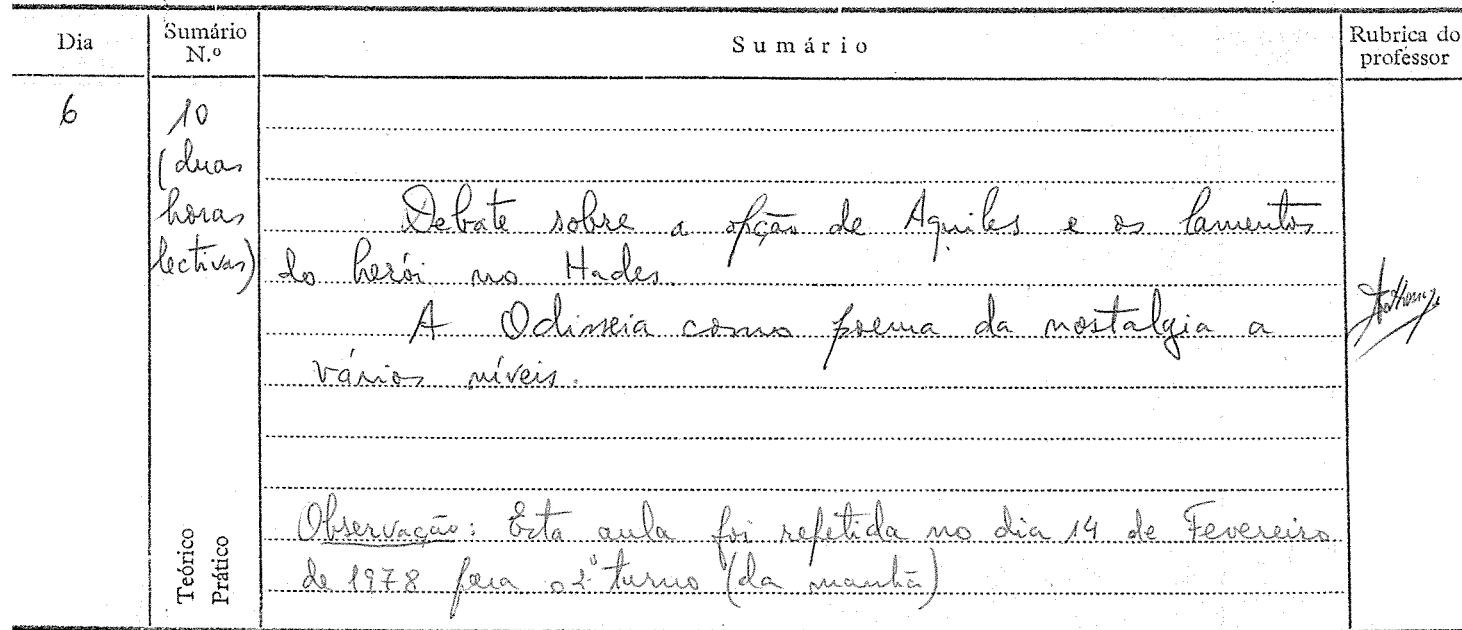 Dia
Sumário N.º
Sumário
Rubrica do professor
6
10
(duas
horas
lectivas)
Debate sobre a opção de Aquiles e os lamentos
do herói no Hades.
A Odisseia como poema da nostalgia a
vários níveis.
Teórico
Prático
Observação: Esta aula foi repetida no dia 14 de Fevereiro
de 1978 para o 2º turno (da manhã)